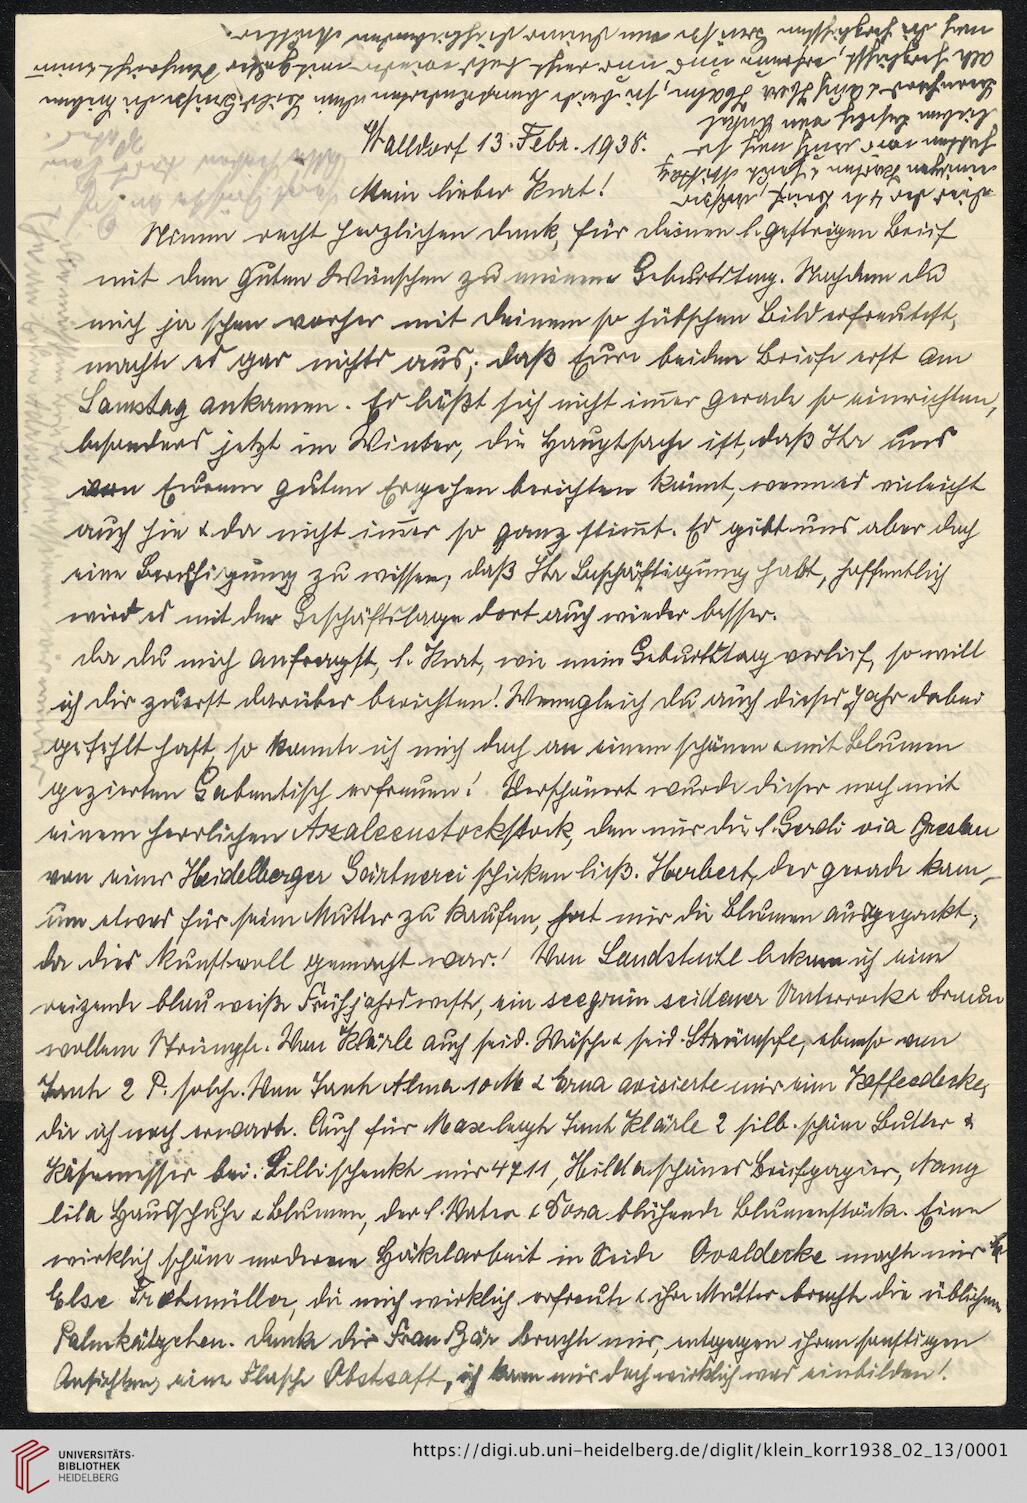 Walldorf 13. Febr. 1938.
Mein lieber Kurt!
Nimm recht herzlichen Dank, für Deinen l. gestrigen Brief
mit den guten Wünschen zu meinem Geburtstag. Nachdem Du
mich ja schon vorher mit Deinem so hübschen Bild erfreutest,
machte es gar nichts aus, daß Eure beiden Briefe erst am
Samstag ankamen. Es läßt sich nicht im̄er gerade so einrichten,
besonders jetzt im Winter, die Hauptsache ist, daß Ihr uns
von Eurem guten Ergehen berichten könnt, wenn es vieleicht
auch hie & da nicht im̄er so ganz stim̄t. Es gibt uns aber doch
eine Beruhigung zu wissen, daß Ihr Beschäftigung habt, hoffentlich
wird es mit der Geschäftslage dort auch wieder besser.
Da Du mich anfragst, l. Kurt, wie mein Geburtstag verlief, so will
ich Dir zuerst darüber berichten! Wenngleich Du auch dieses Jahr dabei
gefehlt hast, so konnte ich mich doch an einem schönen & mit Blumen
gezierten Gabentisch erfreuen! Verschönert wurde dieser noch mit
einem herrlichen Azaleenstockstock, den mir die l. Gerdi via Breslau
von einer Heidelberger Gärtnerei schicken ließ. Herbert, der gerade kam,
um etwas für seine Mutter zu kaufen, hat mir die Blumen ausgepackt,
da dies kunstvoll gemacht war! Von Landstuhl bekam ich eine
reizende blau weiße Frühjahrsweste, ein seegrün seidener Unterrock & braune
wollene Strümpfe. Von Klärle auch seid. Wäsche & seid. Strümpfe, ebenso von
Tante 2 P. solche. Von Tante Alma 10 M & Erna avisierte mir eine Kaffeedecke,
die ich noch erwarte. Auch für Max legte Tante Klärle 2 silb. schöne Butter &
Käsemesser bei. Lilli schenkte mir 4711, Hilda schönes Briefpapier, Nany
lila Hausschuhe & Blumen, der l. Vater & Dora blühende Blumenstöcke. Eine
wirklich schöne moderne Häkelarbeit in Seide Ovaldecke machte mir
Else, die mich wirklich erfreute & ihre Mutter brachte die üblichen
Palmkätzchen. Denke Dir Frau Bär brachte mir, entgegen ihren sonstigen
Ansichten, eine Flasche Obstsaft, ich kann mir doch wirklich was einbilden!
UNIVERSITÄTS-
BIBLIOTHEK
HEIDELBERG
https://digi.ub.uni-heidelberg.de/diglit/klein_korr1938_02_13/0001